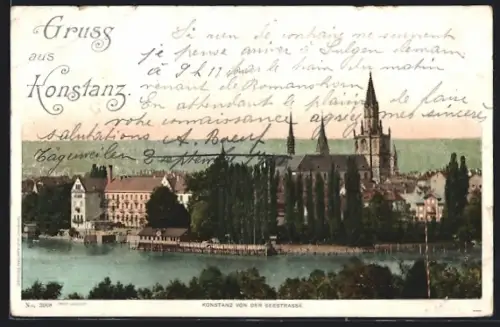 Gruss
aus
Konstanz.
Si rien de contraire ne survient
je pense arriver à Sulgen demain
à 9 h 11 par le train du matin
venant de Romanshorn
En attendant le plaisir de faire
votre connaissance agréez mes sincères
salutations A. Boeuf
Tägerweilen 2 septembre
KONSTANZ VON DER SEESTRASSE.